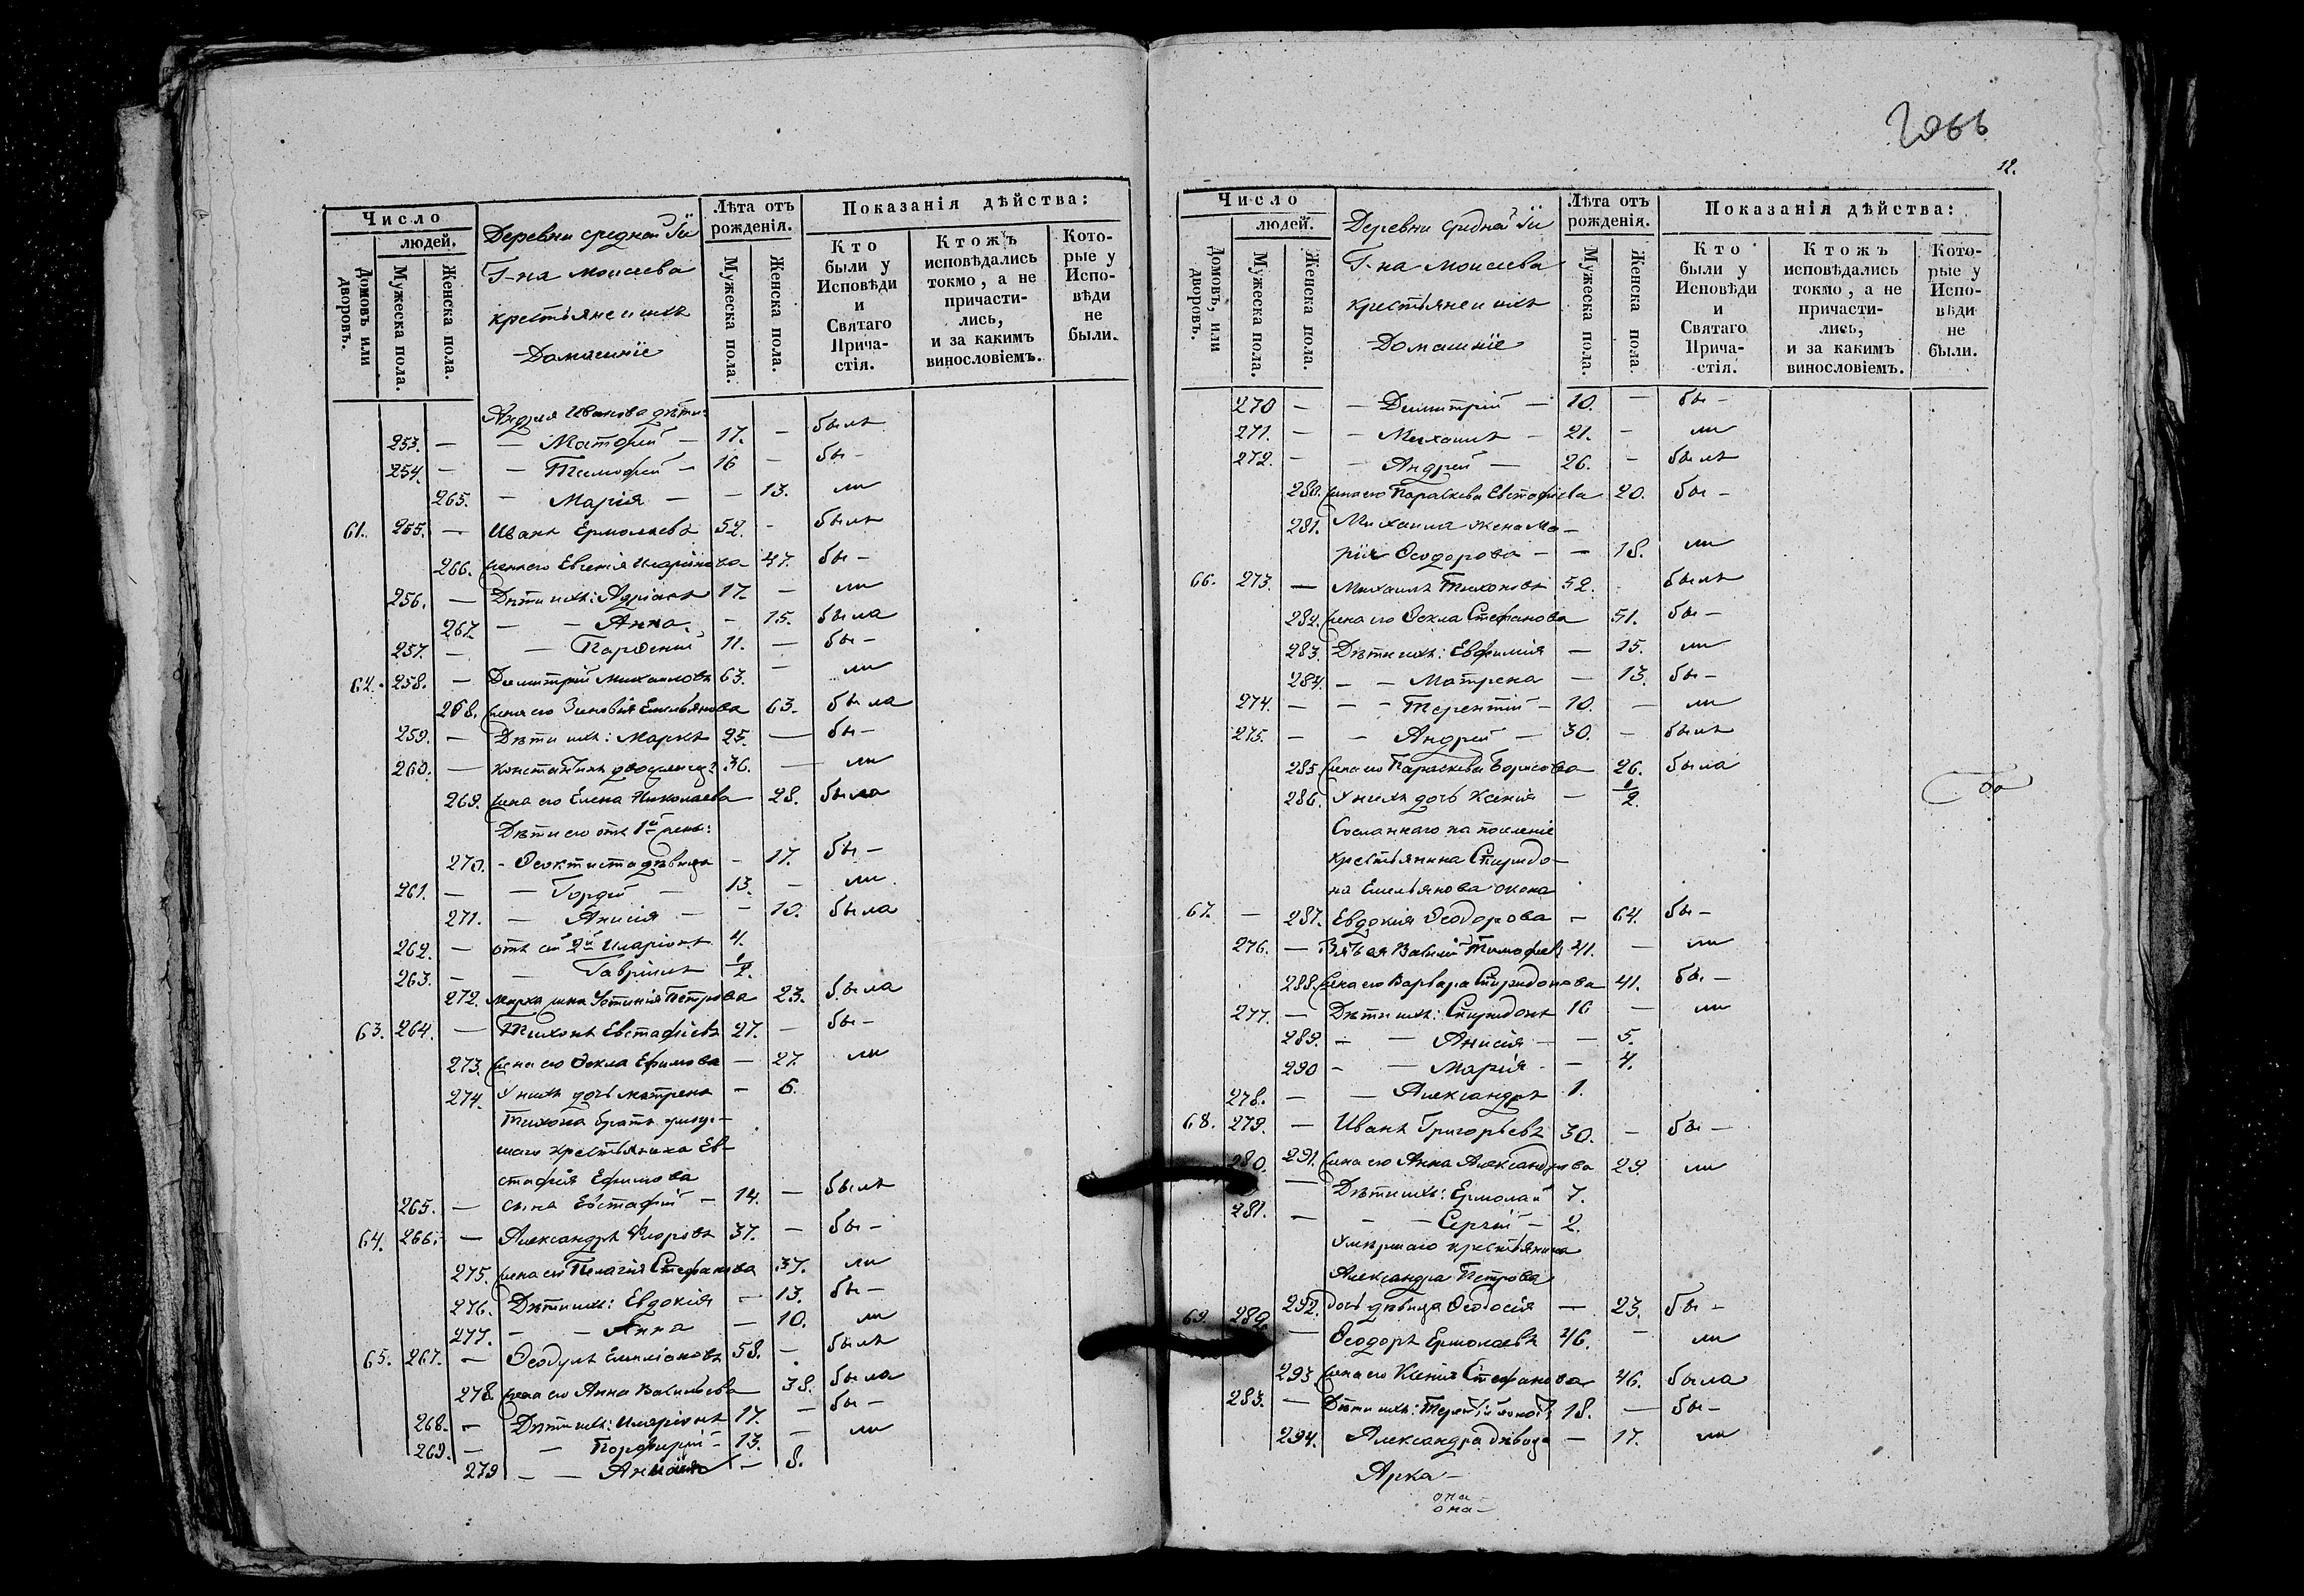 Число
людей.
Домовъ или дворовъ.
Мужеска пола.
Женска пола.
Деревни средней
Г-на Моисеева
крестьяне и ихъ
Домашніе
Лѣта отъ рожденія.
Мужеска пола.
Женска пола.
Показанія дѣйства:
Кто были у Исповѣди и Святаго Прича-стія.
Ктожъ исповѣдались токмо, а не причасти-лись, и за какимъ винословіемъ.
Кото-рые у Испо-вѣди не были.
Андрея Иванова дѣти:
253. — — Матфей — 17. — былъ
254. — — Тимофей — 16 — бы —
265. — Марія — — 13. ли
61. 255. — Иванъ Ермолаевъ 52. - былъ
266. жена его Евгенія Иларіонова 47. бы —
256. — Дѣти ихъ: Адріанъ 17. — ли
267 — — Анна — 15. была
257. — — Парѳеній 11. — бы —
62. 258. — Димитрій Михаиловъ 63. — ли
268. жена его Зиновія Емельянова 63. была
259. — Дѣти ихъ: Маркъ 25. — бы —
260. — Константинъ 36. — ли
269. жена его Елена Николаева 28. была
Дѣти его отъ 1й жены:
270. - Ѳеоктиста дѣвица — 17. бы —
261. — — Гордій — 13. — ли
271. — Анисія — — 10. была
262. — отъ 2й Иларіонъ 4.
263. — — Гавріилъ 1/2.
272. Марка жена Устинія Петрова 23. была
63. 264. — Тихонъ Евстафіевъ 27. — бы —
273. жена его Ѳекла Ефимова — 27. ли
274. У нихъ дочь Матрена — 6.
Тихона братъ умер-
шаго крестьянина Ев-
стафія Ефимова
265. — сына Евстафій — 14. — былъ
64. 266. — Александръ Флоровъ 37. — бы —
275. жена его Пелагія Стефанова 37. ли
276. Дѣти ихъ: Евдокія — 13. бы —
277. - — Анна — 10. ли
65. 267. — Ѳеодулъ Емиліановъ 58. — былъ
278. жена его Анна Васильева 38. была
268. — Дѣти ихъ: Иларіонъ 17. — бы —
269. — — Порфирій — 13. — ли
279 — — — 8.
2066
12.
Число
людей.
Домовъ, или дворовъ.
Мужеска пола.
Женска пола.
Деревни средней
Г-на Моисеева
крестьяне и ихъ
Домашніе
Лѣта отъ рожденія.
Мужеска пола.
Женска пола
Показанія дѣйства:
Кто были у Исповѣди и Святаго Прича-стія.
Ктожъ исповѣдались токмо, а не причасти-лись, и за какимъ винословіемъ.
Кото-рые у Испо-вѣди не были.
270 — — Димитрій — 10. — бы —
271. — — Михаилъ — 21. — ли
272. — — Андрей — 26. — былъ
280. жена его Параскева Евстафіева 20. бы —
281. Михаила жена Ма-
рія Ѳеодорова — — 18. ли
66. 273. — Михаилъ Тихоновъ 52. былъ
282. жена его Ѳекла Стефанова 51. бы —
283. Дѣти ихъ: Евфимія — 15. ли
284. — — Матрена — 13. бы —
274. — — — Терентій — 10. — ли
275. — — Андрей — 30. — былъ
285. жена его Параскева Борисова 26. была
286. У нихъ дочь Ксенія — 1/2.
Сосланнаго на поселеніе
крестьянина Спиридо-
на Емельянова жена
67. — 287. Евдокія Ѳеодорова — 64. бы —
276. — Зять ея Василій Тимофеевъ 41. — ли
288. жена его Варвара Спиридонова 41. бы —
277. — Дѣти ихъ: Спиридонъ 16 — ли
289. — — Анисія — — 5.
290 — — Марія — — 4.
278. — — Александръ 1.
68. 279. — Иванъ Григорьевъ 30. — бы —
291. жена его Анна Александрова 29. ли
280. — Дѣти ихъ: Ермолай 7.
281. — — — Сергій — 2.
Умершаго крестьянина
Александра Петрова
292. дочь дѣвица Ѳеодосія — 23. бы —
69. 282. — Ѳеодоръ Ермолаевъ 46. — ли
293. жена его Ксенія Стефанова 46. была
283. — Дѣти ихъ: 18. — бы —
294. Александра дѣвица — 17. ли